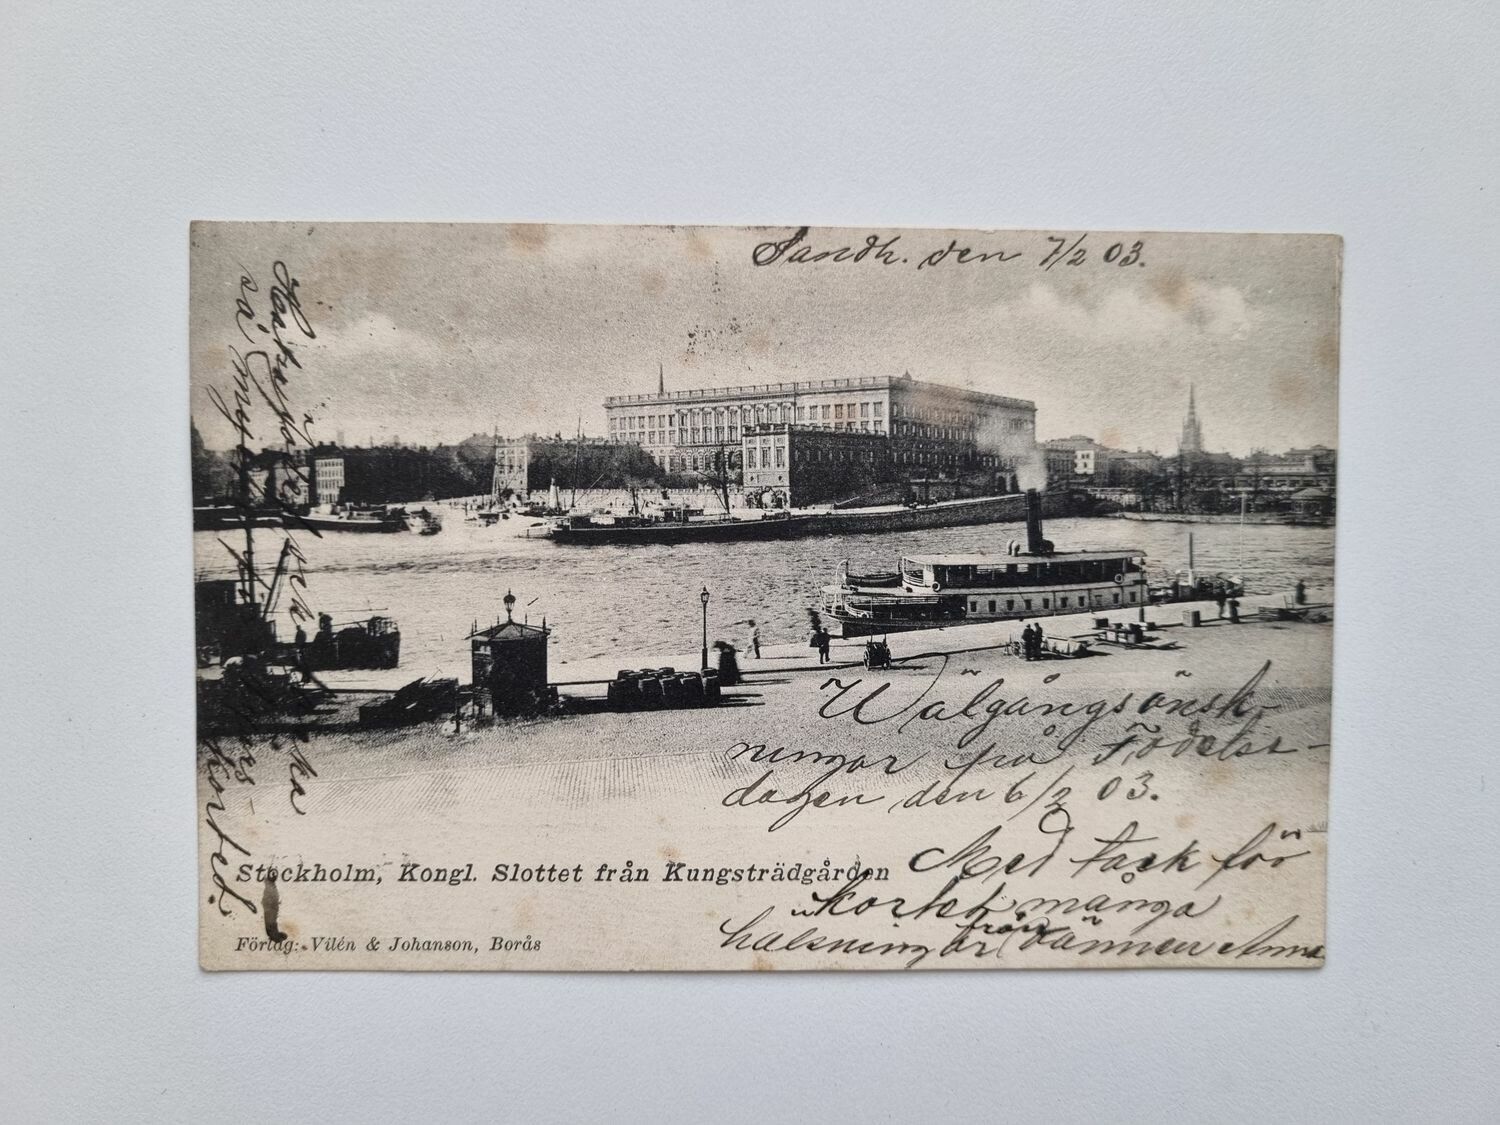 Sandh. den 7/2 03.
Wälgångsönsk-
ningar på Födelse-
dagen den 6/2 03.
Med tack för
kortet många
hälsningar från Vännen Anna
så mycket på
kortet
Stockholm, Kongl. Slottet från Kungsträdgården
Förlag: Vilén & Johanson, Borås